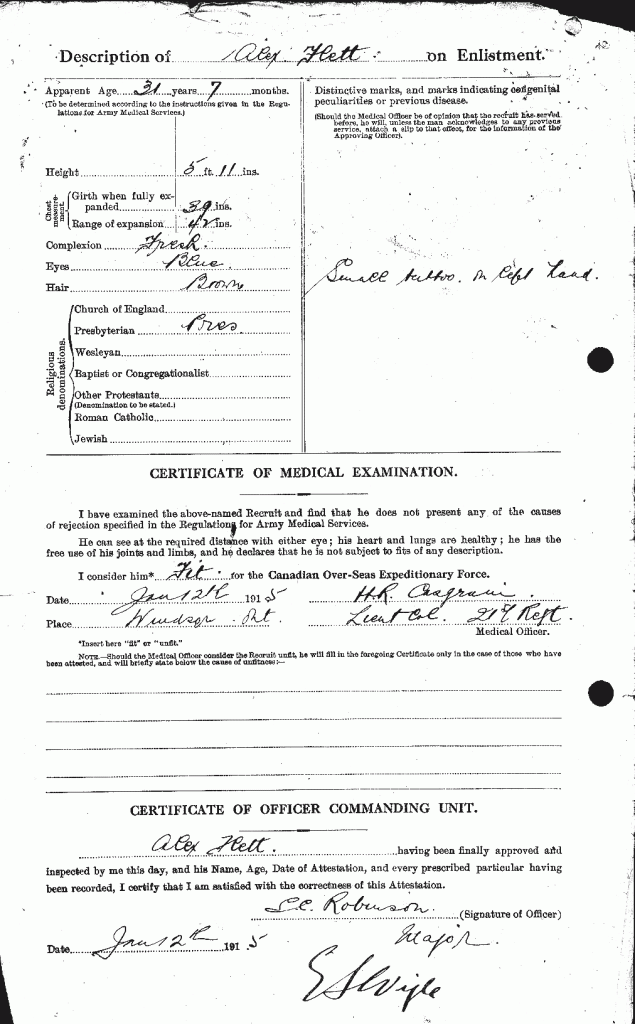 Description of Alex Flett. on Enlistment.
Apparent Age 31 years 7 months.
(To be determined according to the instructions given in the Regulations for Army Medical Services.)
Height 5 ft. 11 ins.
Chest measurement.
Girth when fully expanded 39 ins.
Range of expansion 4½ ins.
Complexion Fresh.
Eyes Blue.
Hair Brown
Religious denominations.
Church of England
Presbyterian Pres
Wesleyan
Baptist or Congregationalist
Other Protestants
(Denomination to be stated.)
Roman Catholic
Jewish
Distinctive marks, and marks indicating congenital
peculiarities or previous disease.
(Should the Medical Officer be of opinion that the recruit has served
before, he will, unless the man acknowledges to any previous
service, attach a slip to that effect, for the information of the
Approving Officer).
Small tattoo. on left hand.
CERTIFICATE OF MEDICAL EXAMINATION.
I have examined the above-named Recruit and find that he does not present any of the causes
of rejection specified in the Regulations for Army Medical Services.
He can see at the required distance with either eye; his heart and lungs are healthy; he has the
free use of his joints and limbs, and he declares that he is not subject to fits of any description.
I consider him* Fit. for the Canadian Over-Seas Expeditionary Force.
Date Jan 12th 1915 H.R. Casgrain
Place Windsor Ont. Lieut Col. 21st Regt.
Medical Officer.
*Insert here "fit" or "unfit."
NOTE.—Should the Medical Officer consider the Recruit unfit, he will fill in the foregoing Certificate only in the case of those who have
been attested, and will briefly state below the cause of unfitness:—
CERTIFICATE OF OFFICER COMMANDING UNIT.
Alex Flett. having been finally approved and
inspected by me this day, and his Name, Age, Date of Attestation, and every prescribed particular having
been recorded, I certify that I am satisfied with the correctness of this Attestation.
S.C. Robinson. (Signature of Officer)
Major.
Date Jan 12th 1915
E S Wigle